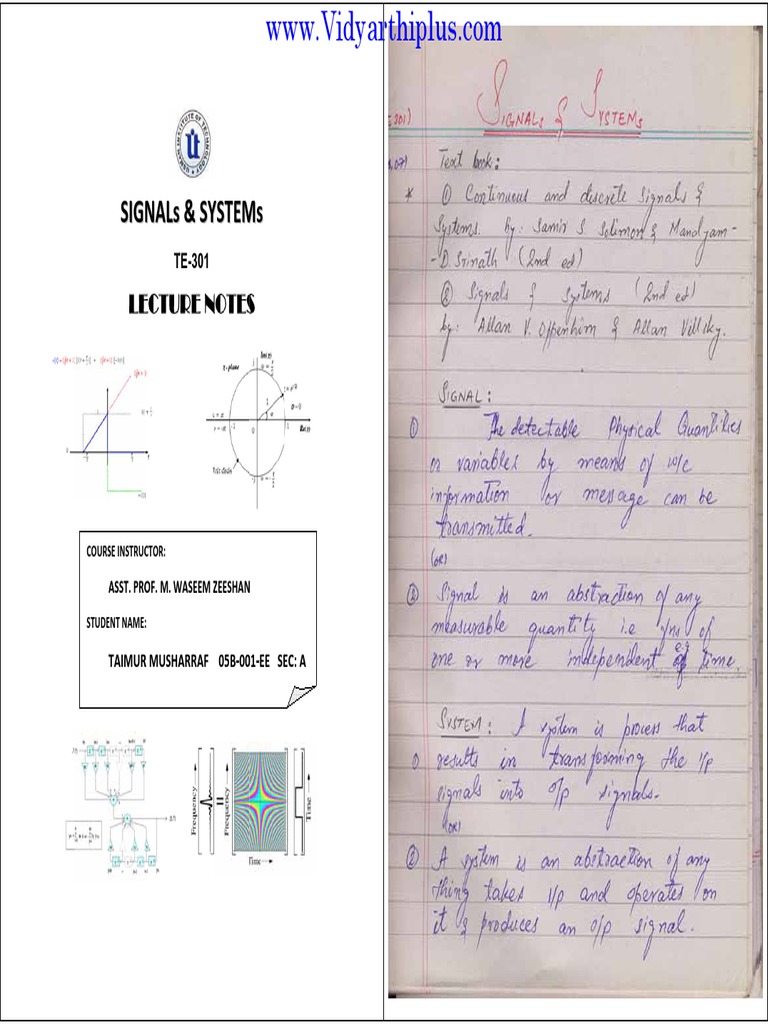 www.Vidyarthiplus.com
USMAN INSTITUTE OF TECHNOLOGY
SIGNALs & SYSTEMs
TE-301
LECTURE NOTES
z-plane
Im(z)
Re(z)
Unit circle
COURSE INSTRUCTOR:
ASST. PROF. M. WASEEM ZEESHAN
STUDENT NAME:
TAIMUR MUSHARRAF 05B-001-EE SEC: A
Frequency
Frequency
Time
Time
SIGNALs & SYSTEMs
301)
Text book:
* ① Continuous and discrete Signals &
Systems. by: Samir S Soliman & Mandyam-
-D. Srinath (2nd ed)
② Signals & Systems (2nd ed)
by: Allan V. Oppenhim & Allan Villsky.
SIGNAL:
① The detectable Physical Quantities
or variables by means of w/c
information or message can be
transmitted.
(OR)
② Signal is an abstraction of any
measurable quantity i.e f/ns of
one or more independent e.g time.
SYSTEM: A system is process that
① results in transforming the i/p
signals into o/p signals.
(OR)
② A system is an abstraction of any
thing takes i/p and operates on
it & produces an o/p signal.